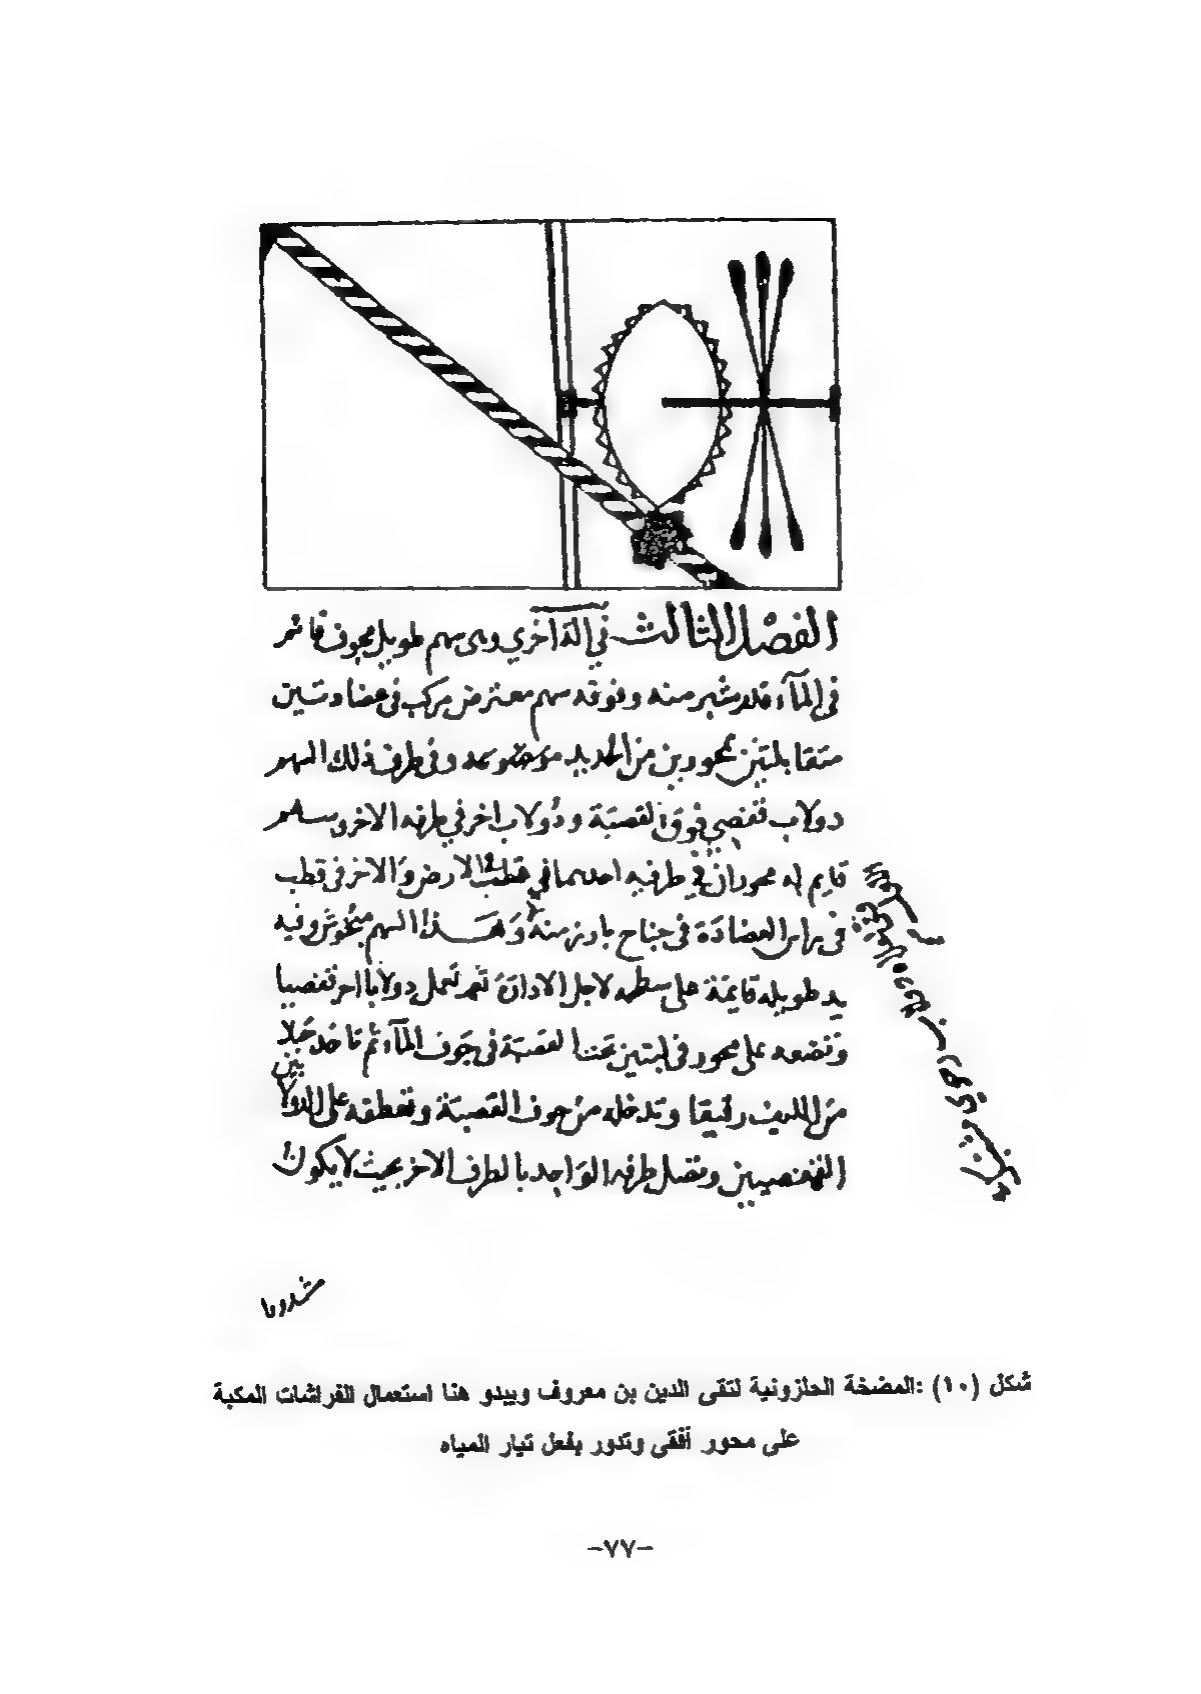 الفصل الثالث في الة اخري وهى سهم طويل مجوف قائم
فى المآء قدر شبر منه وفوقه سهم معترض مركب فى عضادتين
متقابلتين بمحورين من الحديد موضوعه وفى طرف ذلك السهم
دولاب تفصي فوق القصبة ودولاب اخر في طرفه الاخر وسهم
قايم له محوران في طرفيه احدهما في قطب الارض والاخر فى قطب
فى راس العضادة فى جناح بارز منه وهذا السهم منحوش وفيه
يد طويله قايمة على سطحه لاجل الادارة ثم تعمل دولابا اخر تفصيا
وتضعه على محور فى لبنتين تحت القصبة فى جوف المآء ثم تاخذ حبلا
من الليف رقيقا وتدخله من جوف القصبة وتعطفه على الدولابين
التفصيين وتصل طرفه الواحد بالطرف الاخر بحيث لا يكون
شكل (١٠) :المضخة الحلزونية لتقى الدين بن معروف ويبدو هنا استعمال للفراشات المكبة
على محور أفقى وتدور بفعل تيار المياه
-٧٧-